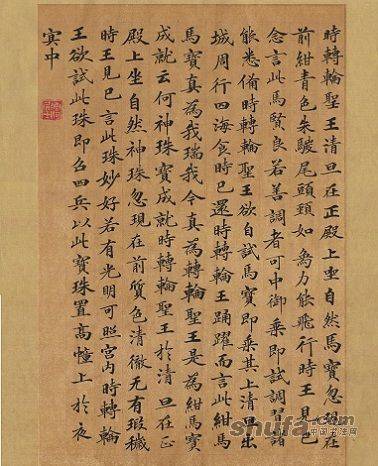 時轉輪聖王清旦在正殿上坐自然馬寶忽現在
前紺青色朱騣尾頭頚如象力能飛行時王見已
念言此馬賢良若善調者可中御乘即試調習諸
能悉備時轉輪聖王欲自試馬寶即乘其上清旦出
城周行四海食時已還時轉輪王踊躍而言此紺馬
寶真為我瑞我今真為轉輪聖王是為紺馬寶
成就云何神珠寶成就時轉輪聖王於清旦在正
殿上坐自然神珠忽現在前質色清徹无有瑕穢
時王見已言此珠妙好若有光明可照宮内時轉輪
王欲試此珠即召四兵以此寶珠置高幢上於夜
冥中
shufa.com
中国书法网